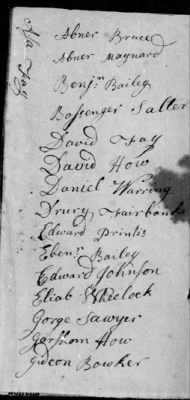 Abner Bruce
Abner Maynard
Benjn. Bailey
Bossenger Salter
David Fay
David How
Daniel Warring
Drury Fairbanks
Edward Printis
Ebenr. Bailey
Edward Johnson
Eliab Wheelock
Gorge Sawyer
Gershom How
Gideon Bowker
Asa Fay